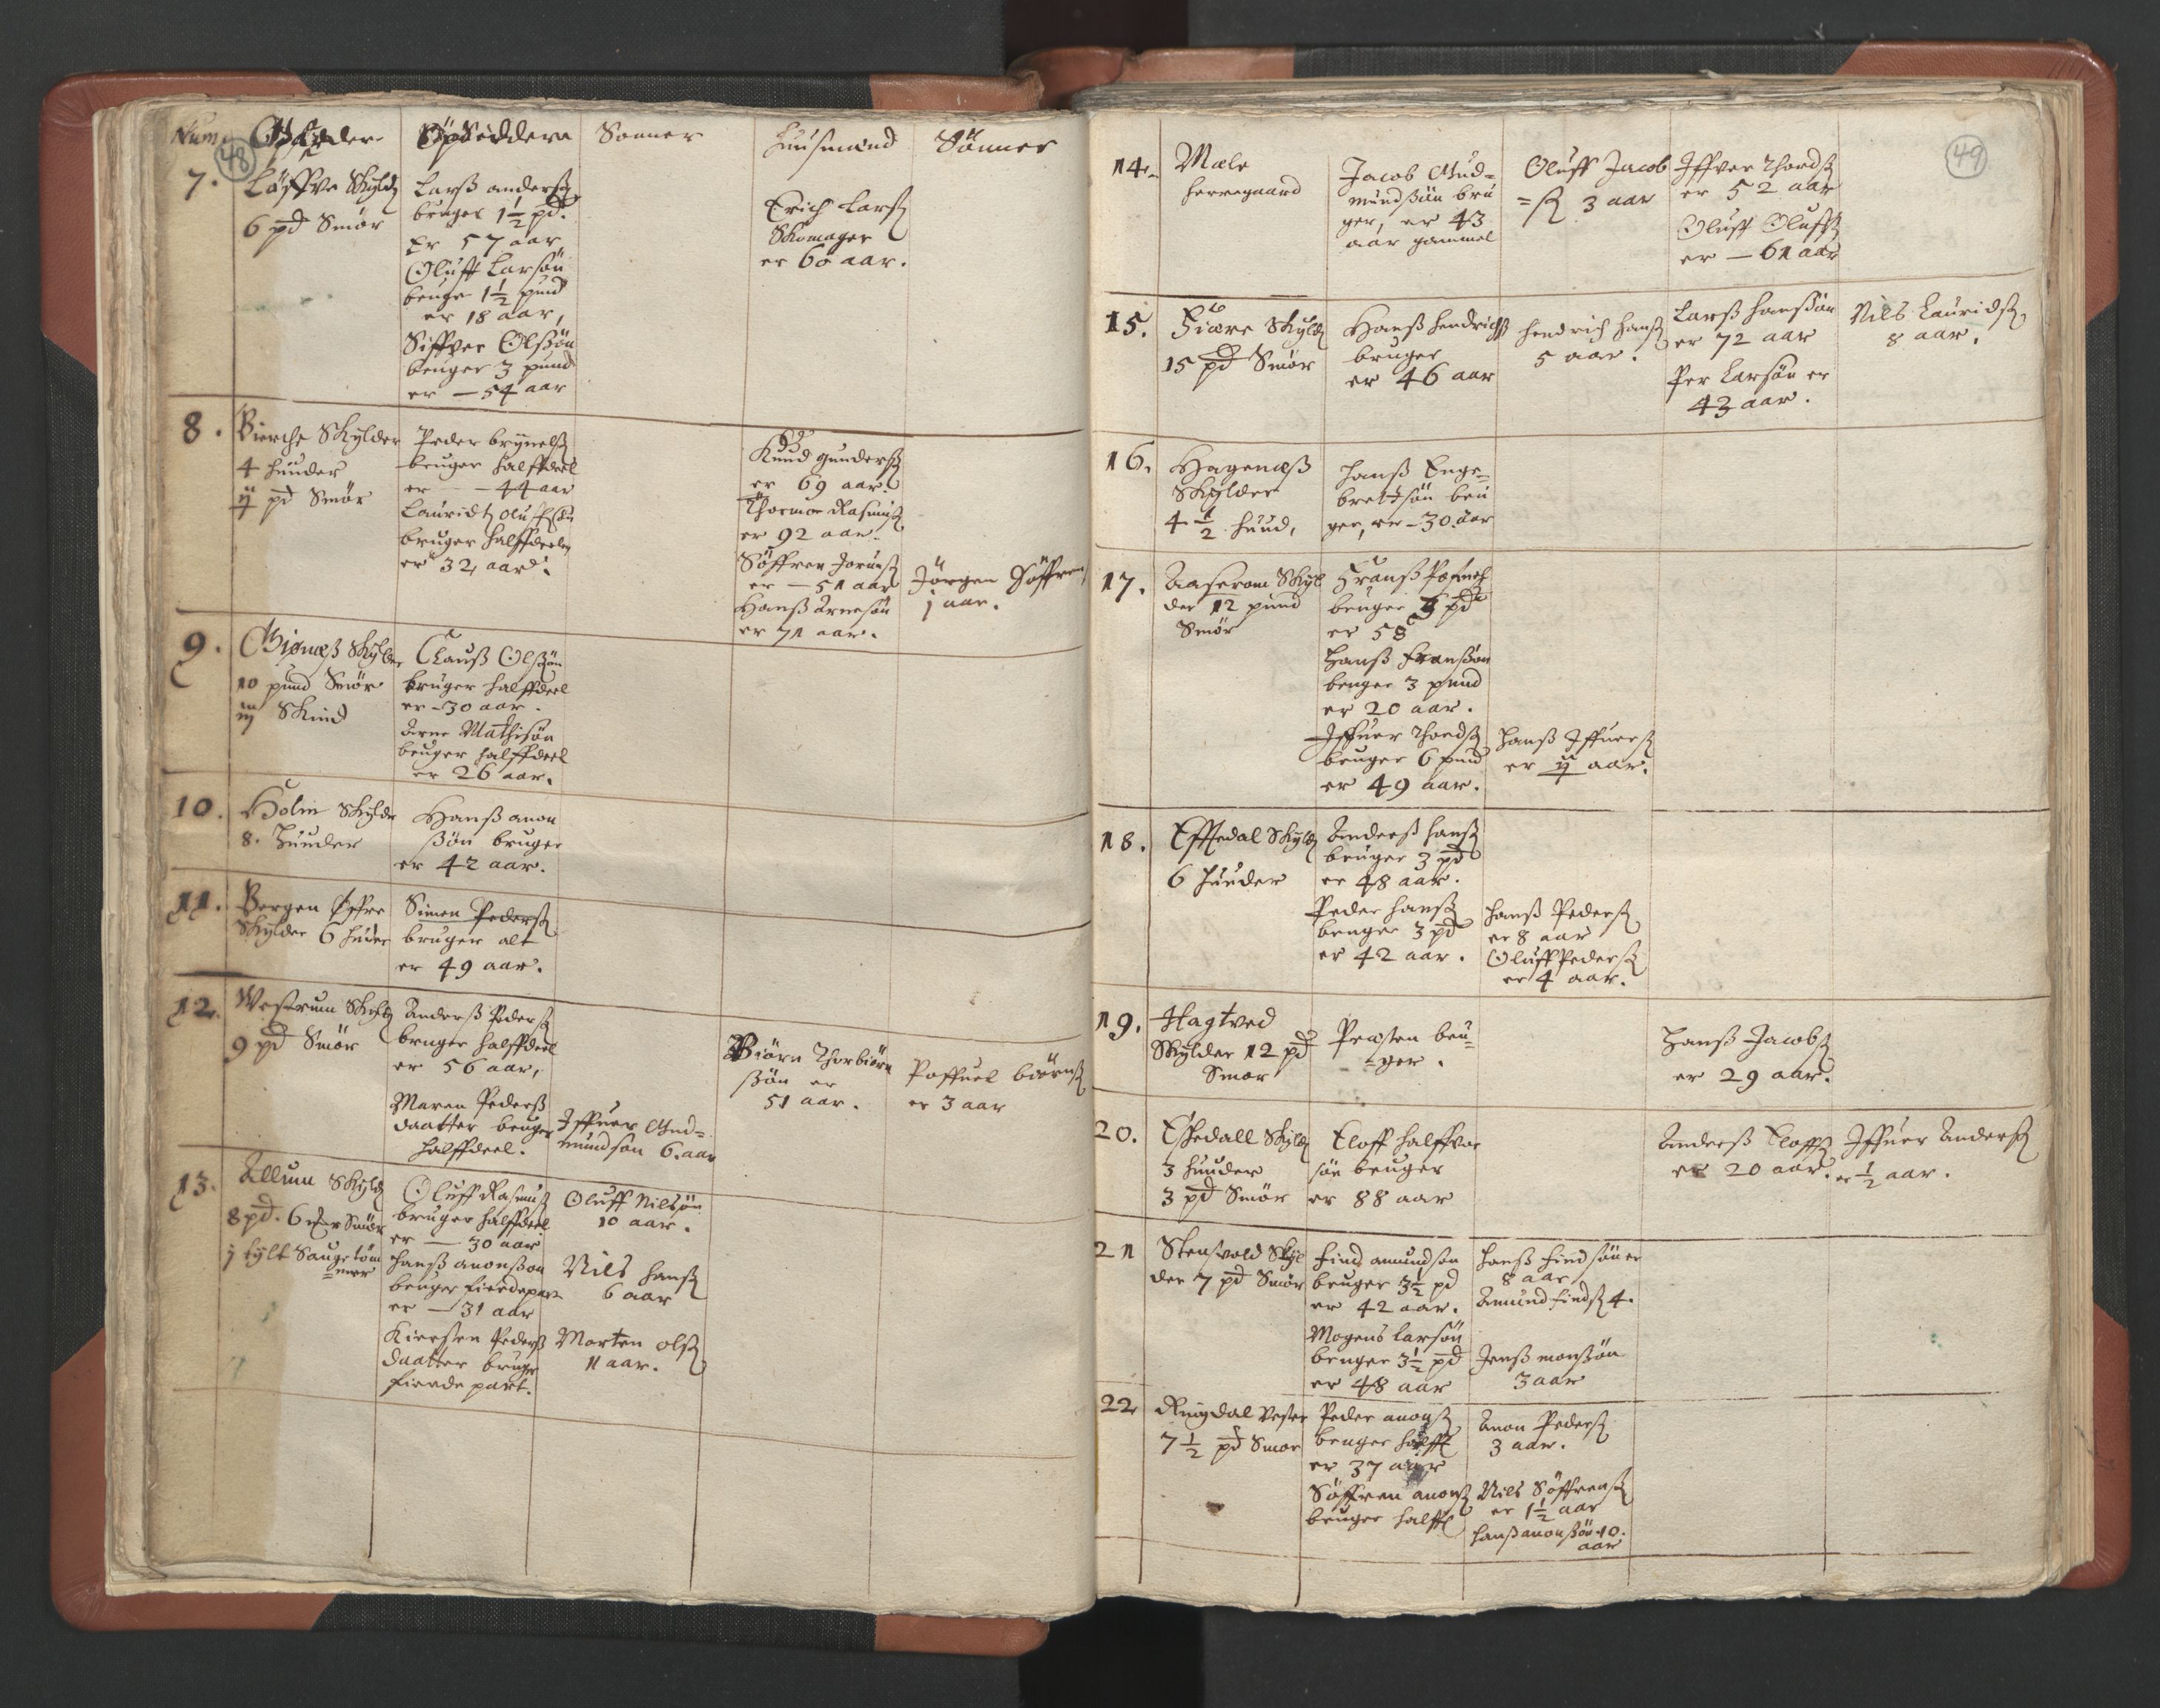 48
Num. Opsiddere Sonner Huusmend Sönner
7. Löffve Skyld
6 pd Smör
Larß anderß
bruger 1½ pd.
Er 57 aar,
Oluff Larsön
bruger 1½ pund
er 18 aar,
Siffver Olßön
bruger 3 pund
er – 54 aar
Erich Larß
Skomager
er 60 aar.
8. Bierche Skylder
4 huuder
ij pd Smör
Peder brynelß
bruger halffdeel
er – 44 aar
Lauridtz Oluffsön
bruger halffdeelen
er 32 aar.
Knud gunderß
er 69 aar.
Thormoe Rasmuß
er 92 aar.
Söffren Joruns
er – 51 aar
Hanß Arnesön
er 71 aar.
Jörgen Söffrens
j aar.
9. Skylder
10 pund Smör
iij Skind
Clauß Olßön
bruger halffdeel
er – 30 aar.
Arne Mathisön
bruger halffdeel
er 26 aar.
10. Holm Skylder
8. Huuder
Hanß anon
ßön bruger
er 42 aar.
11. Bergen Öffre
Skylder 6 huder
Simen Pederß
bruger alt
er 49 aar.
12. Westrum Skyld
9 pd Smör
Anderß Pederß
bruger halffdeel
er 56 aar,
Maren Pederß
daatter bruger
halffdeel.
Iffuer Gud=
mundsön 6. aar
Biörn Thorbiörn
ßön er
51 aar.
Poffuel biörnß
er 3 aar
13. Allum Skyld
8 pd. 6 mr Smör
j tylt Saugetöm
=mer
Oluff Rasmuß
bruger halffdeel
er – 30 aar
Hanß anonßön
bruger fierdepart
er – 31 aar
Kiersten Pederß
daatter bruger
fierde part.
Oluff Nilsön
10 aar.
Nils Hanß
6 aar
Morten Olß
11 aar.
49
14. Mæle
herregaard
Jacob Gud=
mundßön bru
ger, er 43
aar gammel
Oluff Jacob
=ß 3 aar
Iffver Thordß
er 52 aar
Oluff Oluffß
er – 61 aar
15. Fiære Skyld
15 pd Smör
Hanß Hendrichß
bruger
er 46 aar
Hendrich Hanß
5 aar.
Larß Hansßön
er 72 aar
Per Larsön er
43 aar.
Nils Lauridß
8 aar.
16. Hagenæß
Skylder
4 ½ huud,
Hanß Enge=
bretsön bru
ger, er – 30. aar
17. Aaserom Skyl
der 12 pund
Smör
Franß Pofuelß
bruger 3 pd
er 58
Hanß Franßön
bruger 3 pund
er 20 aar.
Iffuer Thordß
bruger 6 pund
er 49 aar.
Hanß Iffuerß
er ij aar.
18. Efftedal Skyld
6 Huuder
Anderß Hanß
bruger 3 pd
er 48 aar.
Peder Hanß
bruger 3 pd
er 42 aar.
Hanß Pederß
er 8 aar
Oluff Pederß
er 4 aar.
19. Hagtved
Skylder 12 pd
Smör
Præsten bru=
=ger.
Hanß Jacobß
er 29 aar.
20. Eschedall Skyld
3 huuder
3 pd Smör
Eloff Halffvor
sön bruger
er 88 aar
Anderß Eloffß
er 20 aar.
Iffuer Anderß
er ½ aar.
21 Stensvold Skyl
der 7 pd Smör
Find amundsön
bruger 3½ pd
er 42 aar.
Mogens Larsön
bruger 3½ pd
er 48 aar
Hanß Find sön er
8 aar
Amund Findß 4.
Jenß monßön
3 aar
22 Ringdal Vester
7 ½ pd Smör
Peder anonß
bruger halfft
er 37 aar
Söffren anonß
bruger halfft
Anon Pederß
3 aar.
Nils Söffrenß
er 1½ aar
Hanß anonßön 10.
aar